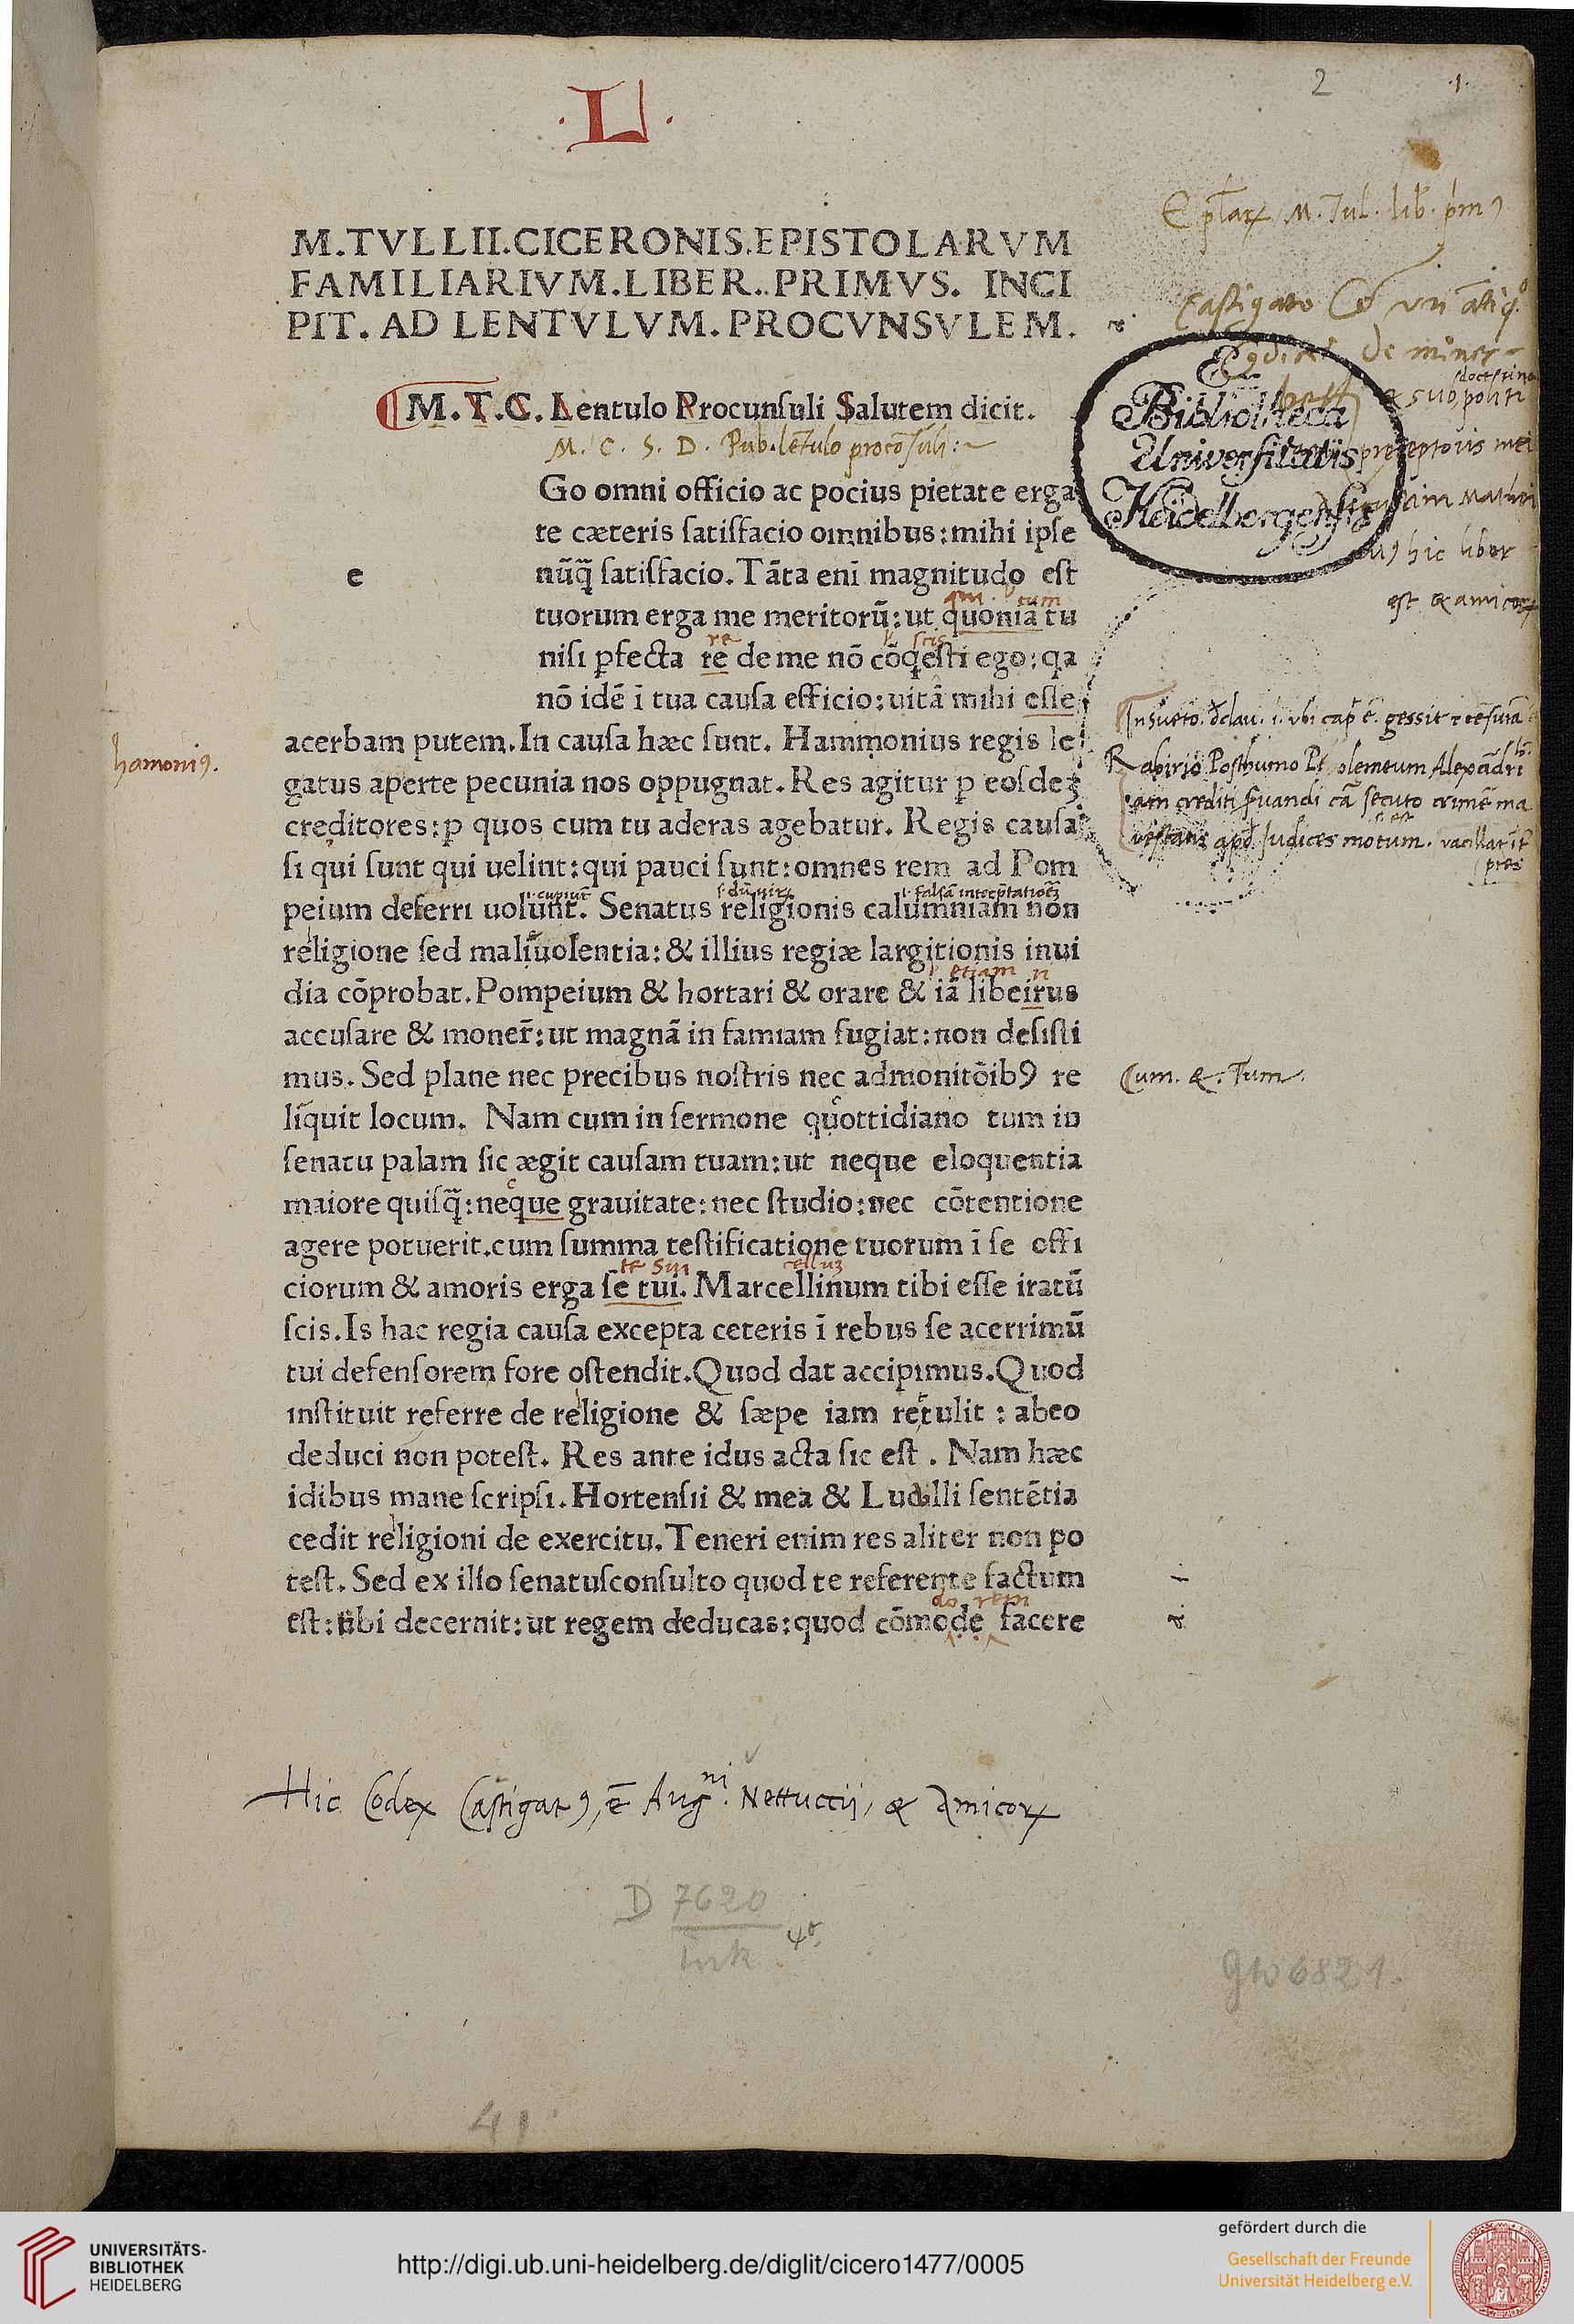 2 .1.
.L.
Eplar M. Tul. lib. pm9
M.TVLLII.CICERONIS.EPISTOLARVM
FAMILIARIVM.LIBER.PRIMVS. INCI
PIT. AD LENTVLVM.PROCVNSVLEM.
M.T.C. Lentulo Procunſuli Salutem dicit.
M. C. S. D. Pub. lētulo procōſuli:~
Bibliotheca
Universitatis
Heidelbergensis
hic liber
est & amicor
Go omni officio ac pocius pietate erga
te cæteris ſatiſfacio omnibus:mihi ipſe
e nūq̃ ſatiſfacio.Tāta enī magnitudo eſt
tuorum erga me meritorū:ut quoniā tu
niſi ꝑfecta re de me nō cōq̃eſti ego:qa
nō idē ī tua cauſa efficio:uitā mihi eſſe
acerbam putem.In cauſa hæc ſunt. Hammonius regis le
hamoni9.
gatus aperte pecunia nos oppugnat.Res agitur p eoſdeꝫ
creditores:p quos cum tu aderas agebatur. Regis cauſa
ſi qui ſunt qui uelint:qui pauci ſunt:omnes rem ad Pom
peium deferri uolunt. Senatus religionis calumniam non
religione ſed maliuolentia:& illius regiæ largitionis inui
dia cōprobat.Pompeium & hortari & orare & iā libeirus
accuſare & moner̄:ut magnā in famiam fugiat:non deſiſti
mus. Sed plane nec precibus noſtris nec admonitōib9 re
Cum. &. Tum.
liquit locum. Nam cum in ſermone quottidiano tum in
ſenatu palam ſic ægit cauſam tuam:ut neque eloquentia
maiore quiſq̃:neque grauitate:nec ſtudio:nec cōtentione
agere potuerit.cum ſumma teſtificatione tuorum ī ſe offi
ciorum & amoris erga ſe tui. Marcellinum tibi eſſe iratū
ſcis.Is hac regia cauſa excepta ceteris ī rebus ſe acerrimū
tui defenſorem fore oſtendit.Quod dat accipimus.Quod
inſtituit referre de religione & ſæpe iam retulit : abeo
deduci non poteſt. Res ante idus acta ſic eſt . Nam hæc
idibus mane ſcripſi.Hortenſii & mea & Luculli ſentētia
cedit religioni de exercitu.Teneri enim res aliter non po
teſt. Sed ex illo ſenatuſconſulto quod te referente factum
eſt:tibi decernit:ut regem deducas:quod cōmode facere
a. i
Hic Codex Caſtigat9, ē Augni. Nettuccii, & Amicor
D 7620
Ink. 4°.
GW 6821.
41
UNIVERSITÄTS-
BIBLIOTHEK
HEIDELBERG
http://digi.ub.uni-heidelberg.de/diglit/cicero1477/0005
gefördert durch die
Gesellschaft der Freunde
Universität Heidelberg e.V.